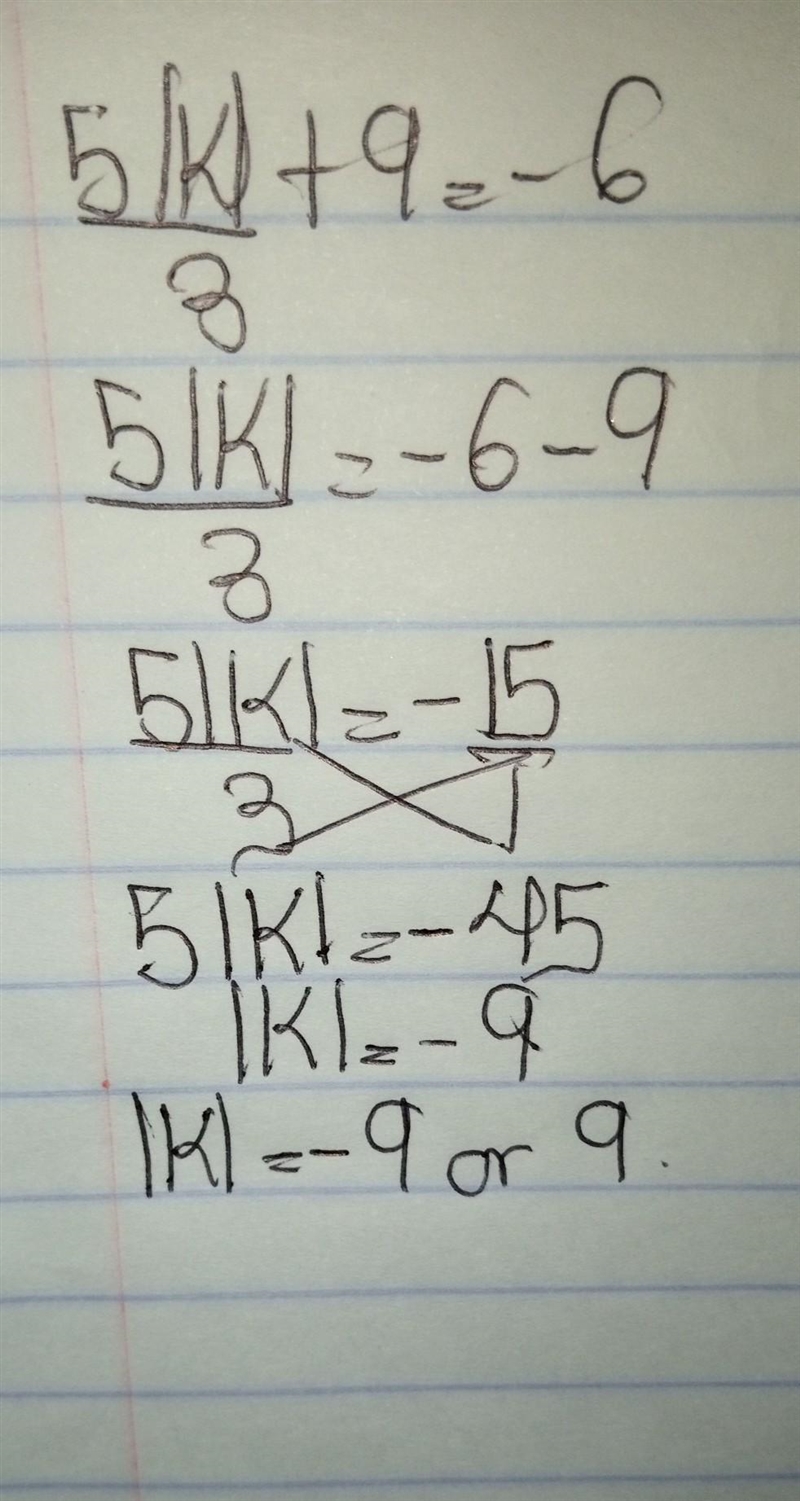 5|K| + 9 = -6
3
5|K| = -6 - 9
3
5|K| = -15
3 1
5|K| = -45
|K| = -9
|K| = -9 or 9.